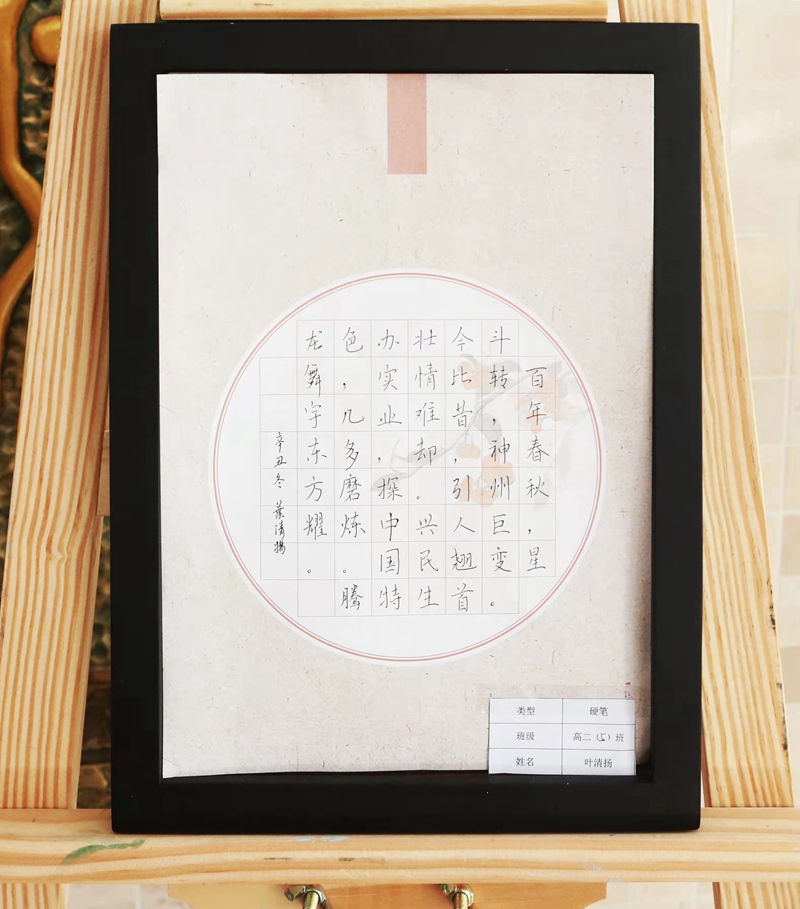 百年春秋，星
斗转，神州巨变。
今比昔，引人翘首。
壮情难却。兴民生
办实业，探中国特
色，几多磨炼。腾
龙舞宇东方耀。
辛丑冬 葉清揚
类型 硬笔
班级 高二（5）班
姓名 叶清扬